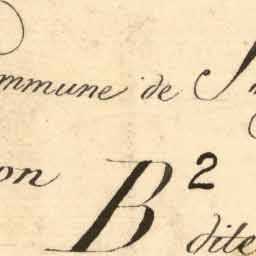 ommune de S
on B 2
dite